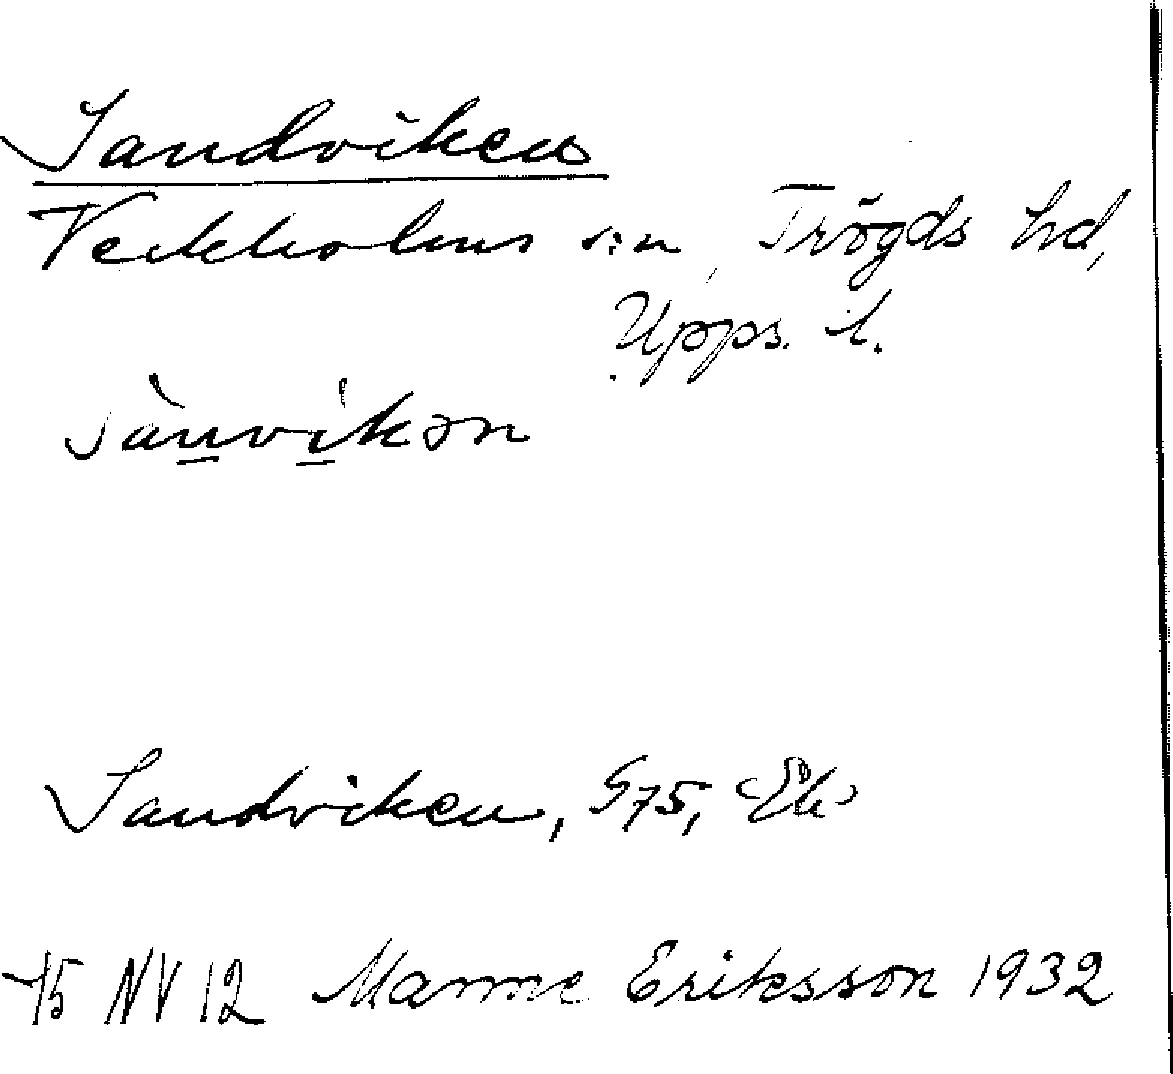 Sandviken
Veckholms sn, Trögds hd,
Upps. l.
sànvikən
Sandviken, G75, Ek
75 NV 12 Manne Eriksson 1932